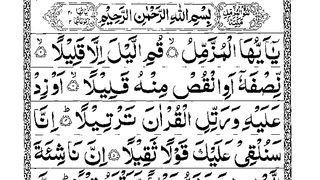 بِسْمِ اللّٰهِ الرَّحْمٰنِ الرَّحِيْمِ
يٰۤاَيُّهَا الْمُزَّمِّلُۙ قُمِ الَّيْلَ اِلَّا قَلِيْلًاۙ
نِّصْفَهٗۤ اَوِ انْقُصْ مِنْهُ قَلِيْلًاۙ اَوْ زِدْ
عَلَيْهِ وَرَتِّلِ الْقُرْاٰنَ تَرْتِيْلًاؕ اِنَّا
سَنُلْقِيْ عَلَيْكَ قَوْلًا ثَقِيْلًا اِنَّ نَاشِئَةَ